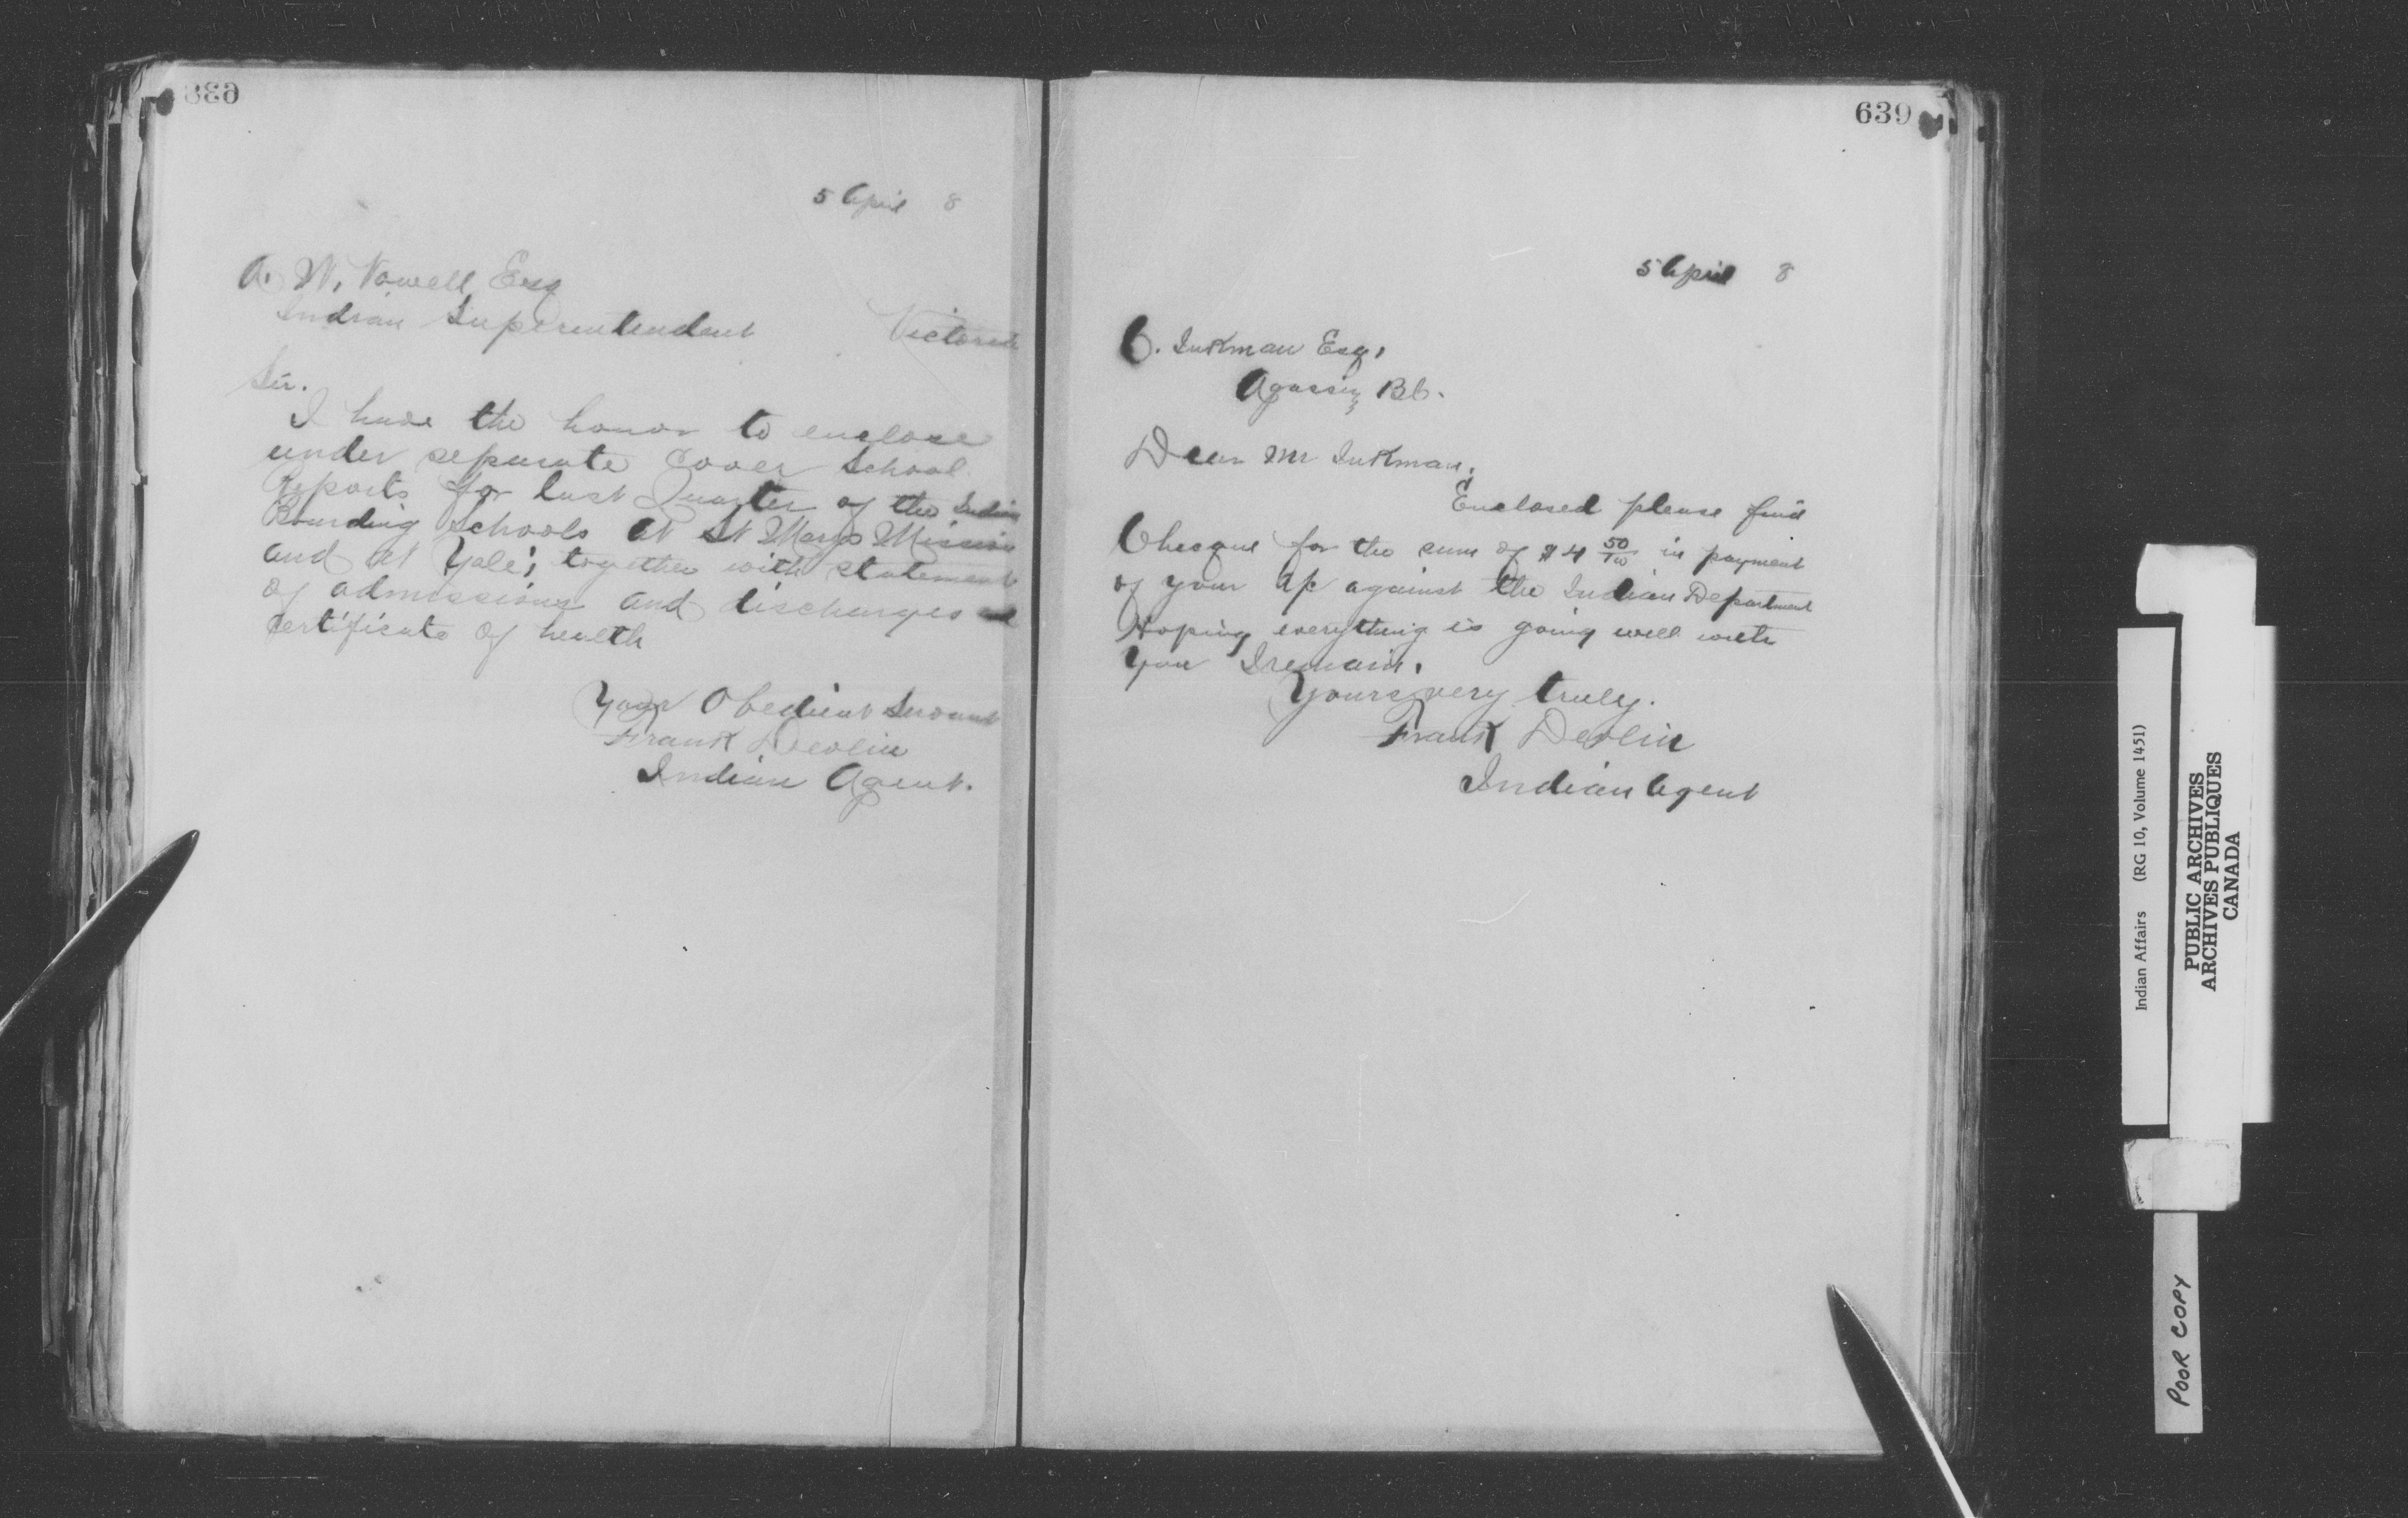 638
5 April 8
A. W. Vowell Esq
Indian Superintendent Victoria
Sir.
I have the honor to enclose
under separate cover School
Reports for last Quarter of the Indian
Boarding Schools at St Marys Mission
and at Yale; together with statement
of admissions and discharges and
certificate of health
Your Obedient Servant
Frank Devlin
Indian Agent.
639
5 April 8
C. Inkman Esq,
Agassiz BC.
Dear Mr Inkman,
Enclosed please find
Cheque for the sum of $4 50/100 in payment
of your a/c against the Indian Department
Hoping everything is going well with
you I remain,
Yours very truly.
Frank Devlin
Indian Agent
Indian Affairs (RG 10, Volume 1451)
PUBLIC ARCHIVES
ARCHIVES PUBLIQUES
CANADA
POOR COPY